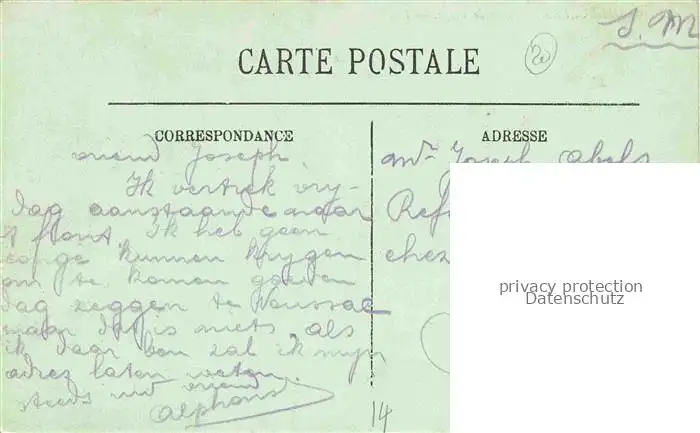 S. M
20
CARTE POSTALE
CORRESPONDANCE
ADRESSE
vriend Joseph.
Ik vertrek vry-
dag aanstaande naar
't front. Ik heb geen
congé kunnen krygen
om te komen goeden
dag zeggen te
maar dat is niets, als
ik daar ben zal ik myn
adres laten weten.
steeds uw vriend
Alphons
Mr Joseph Abels
Ref
chez
privacy protection
Datenschutz
14